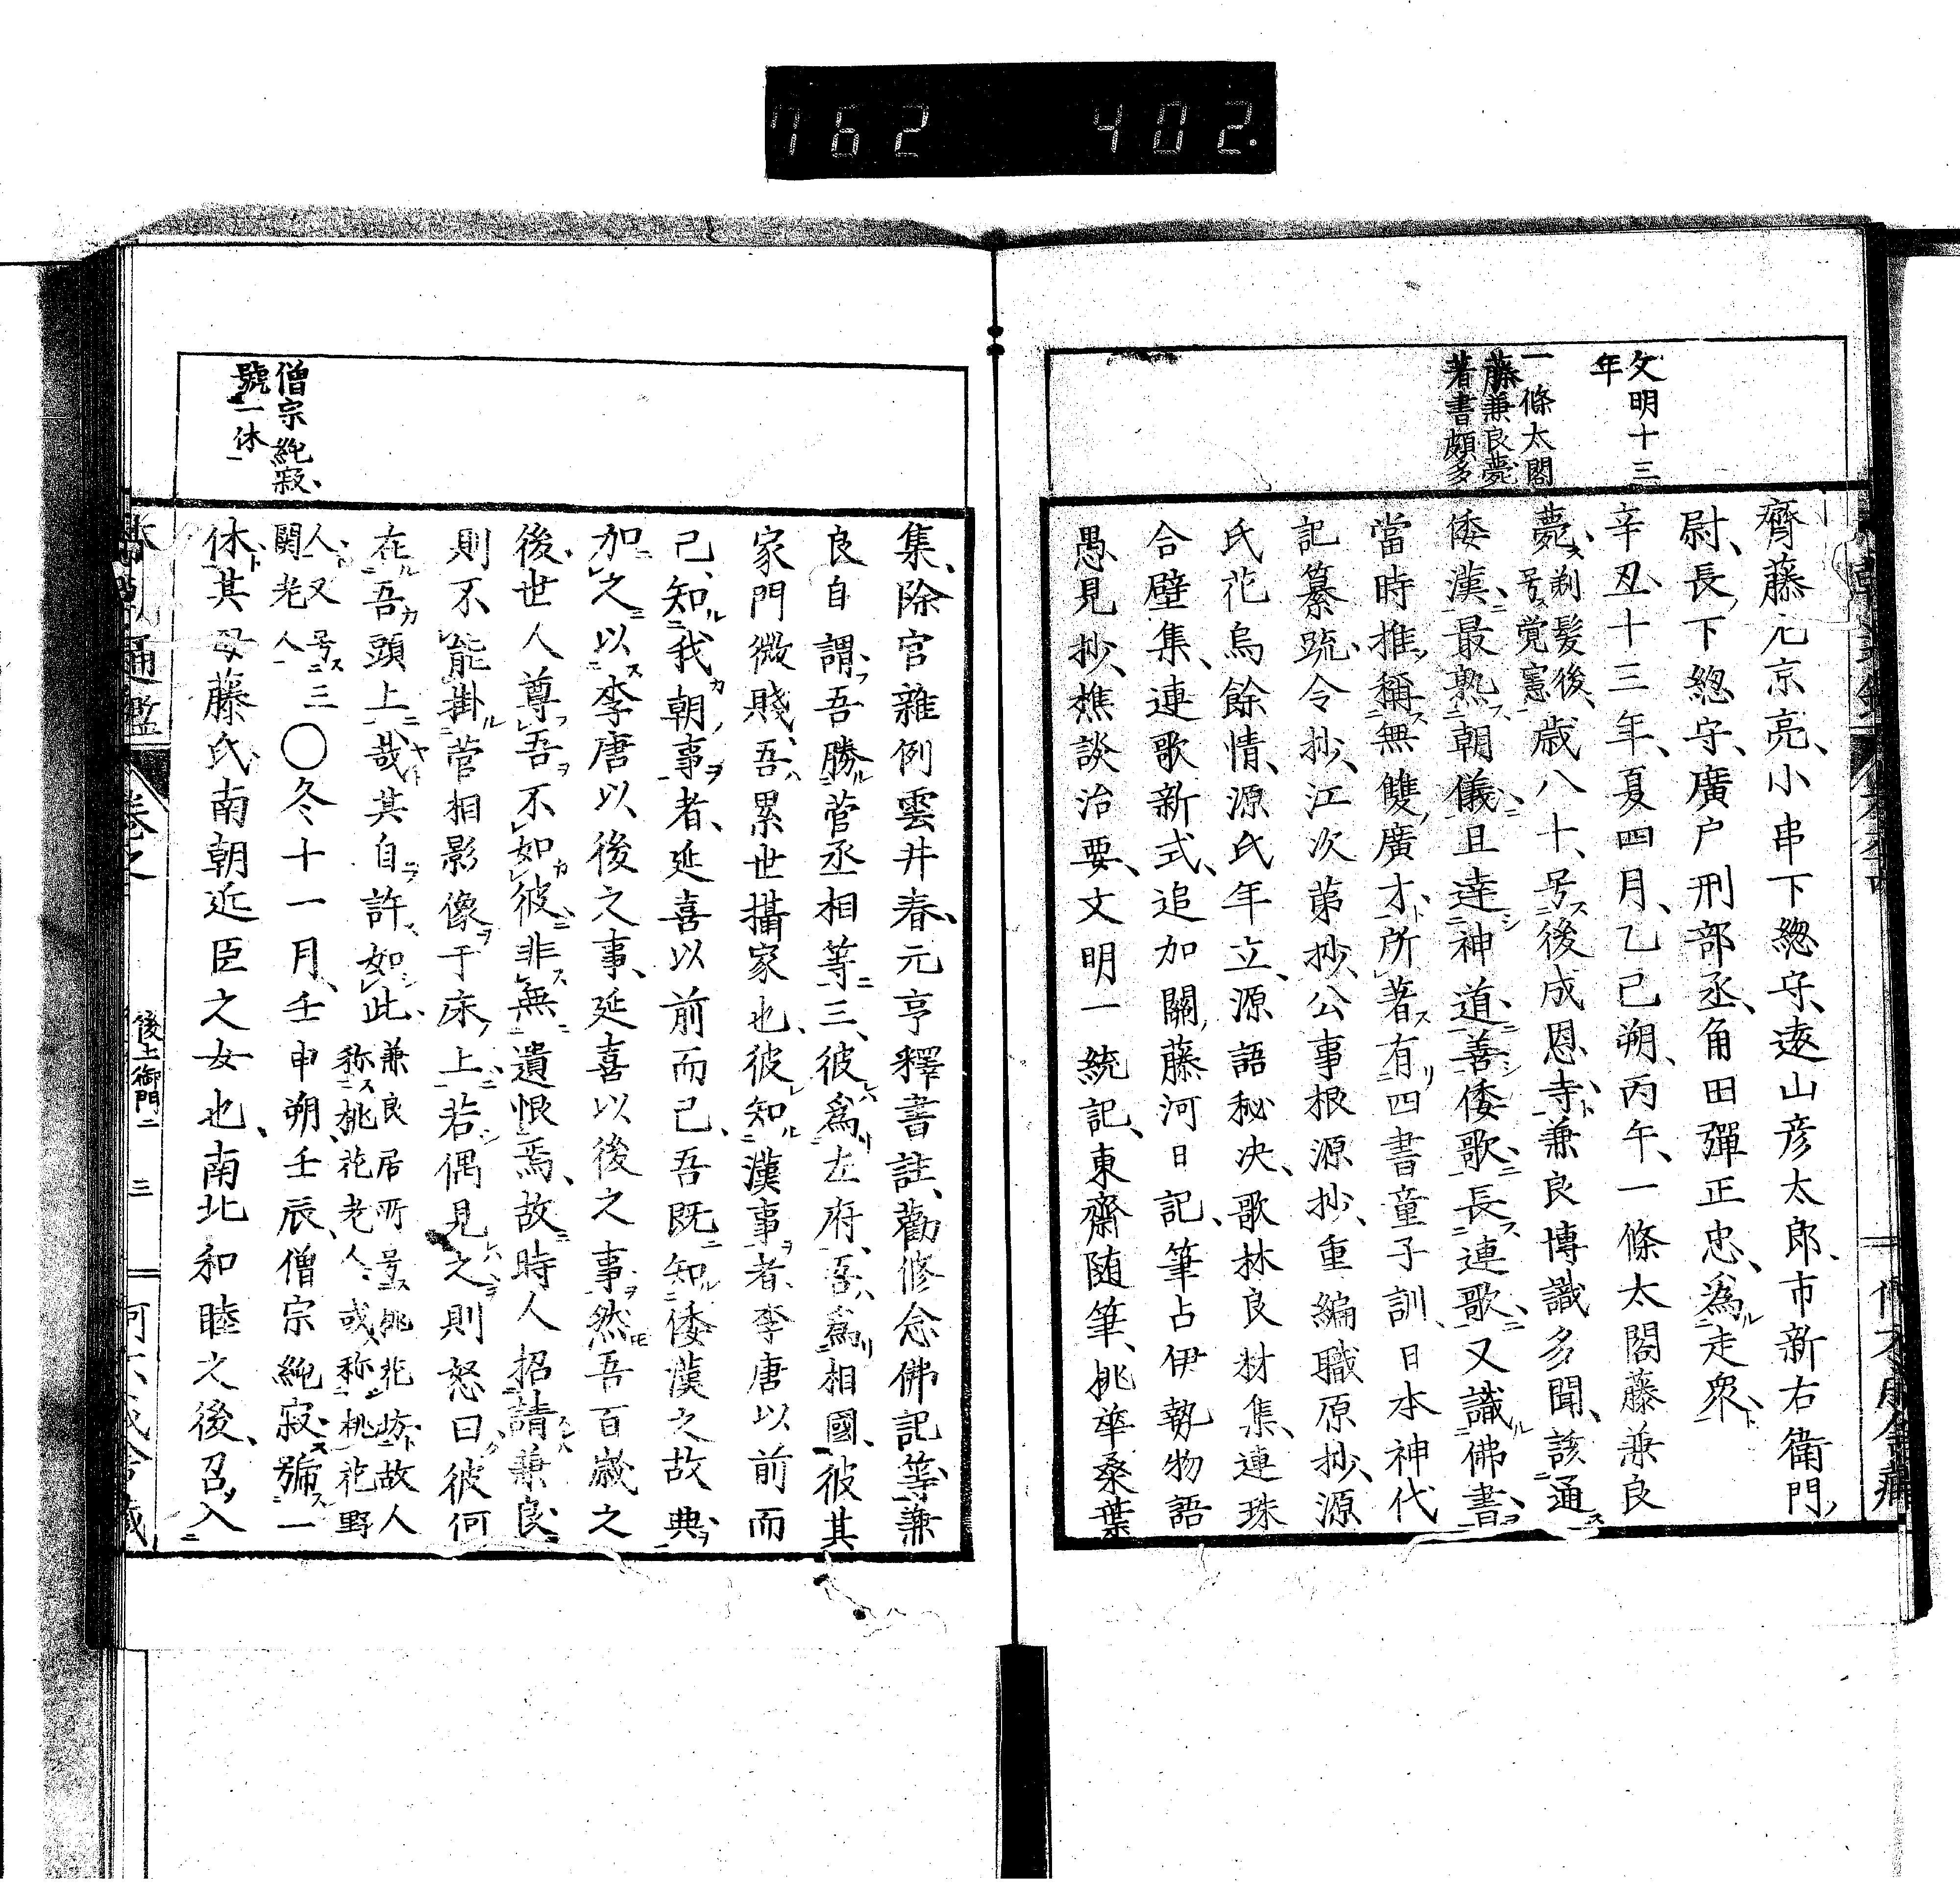 762 402.
文明十三
年
一條太閤
藤兼良薨
著書頗多
齊藤元京亮、小串下總守、遠山彦太郎、市新右衛門、
尉、長下總守、廣戸刑部丞、角田彈正忠、爲走衆、
辛丑十三年、夏四月、乙己朔、丙午、一條太閤藤兼良
薨、剃髮後、号覚惠歳八十、号後成恩寺、兼良博識多聞、該通
倭漢、最熟朝儀、且達神道、善倭歌、長連歌、又識佛書、
當時推稱無雙廣才、所著有四書童子訓、日本神代
記纂疏、令抄、江次第抄、公事根源抄、重編職原抄、源
氏花鳥餘情、源氏年立、源語秘决、歌林良材集、連珠
合壁集、連歌新式、追加關藤河日記、筆占伊勢物語
愚見抄、樵談治要、文明一統記、東齋随筆、桃華桑葉
集、除官雜例雲井春、元亨釋書註、勸修念佛記等、兼
良自謂、吾勝菅丞相等三、彼爲左府、吾爲相國、彼其
家門微賤、吾累世攝家也、彼知漢事者、李唐以前而
己、知我朝事者、延喜以前而己、吾既知倭漢之故典、
加之以李唐以後之事、延喜以後之事、然吾百歲之
後、世人尊吾不如彼、非無遺恨焉、故時人招請兼良、
則不能掛菅相影像于床上、若偶見之則怒曰、彼何
在吾頭上哉、其自許如此、兼良居所号桃花坊故人
称桃花老人、或称桃花野
人、又号三
關老人 〇冬十一月、壬申朔、壬辰、僧宗純寂、號一
休、其母藤氏、南朝近臣之女也、南北和睦之後、召入
僧宗純寂、
號一休
通鑑
卷之
後土御門二
三